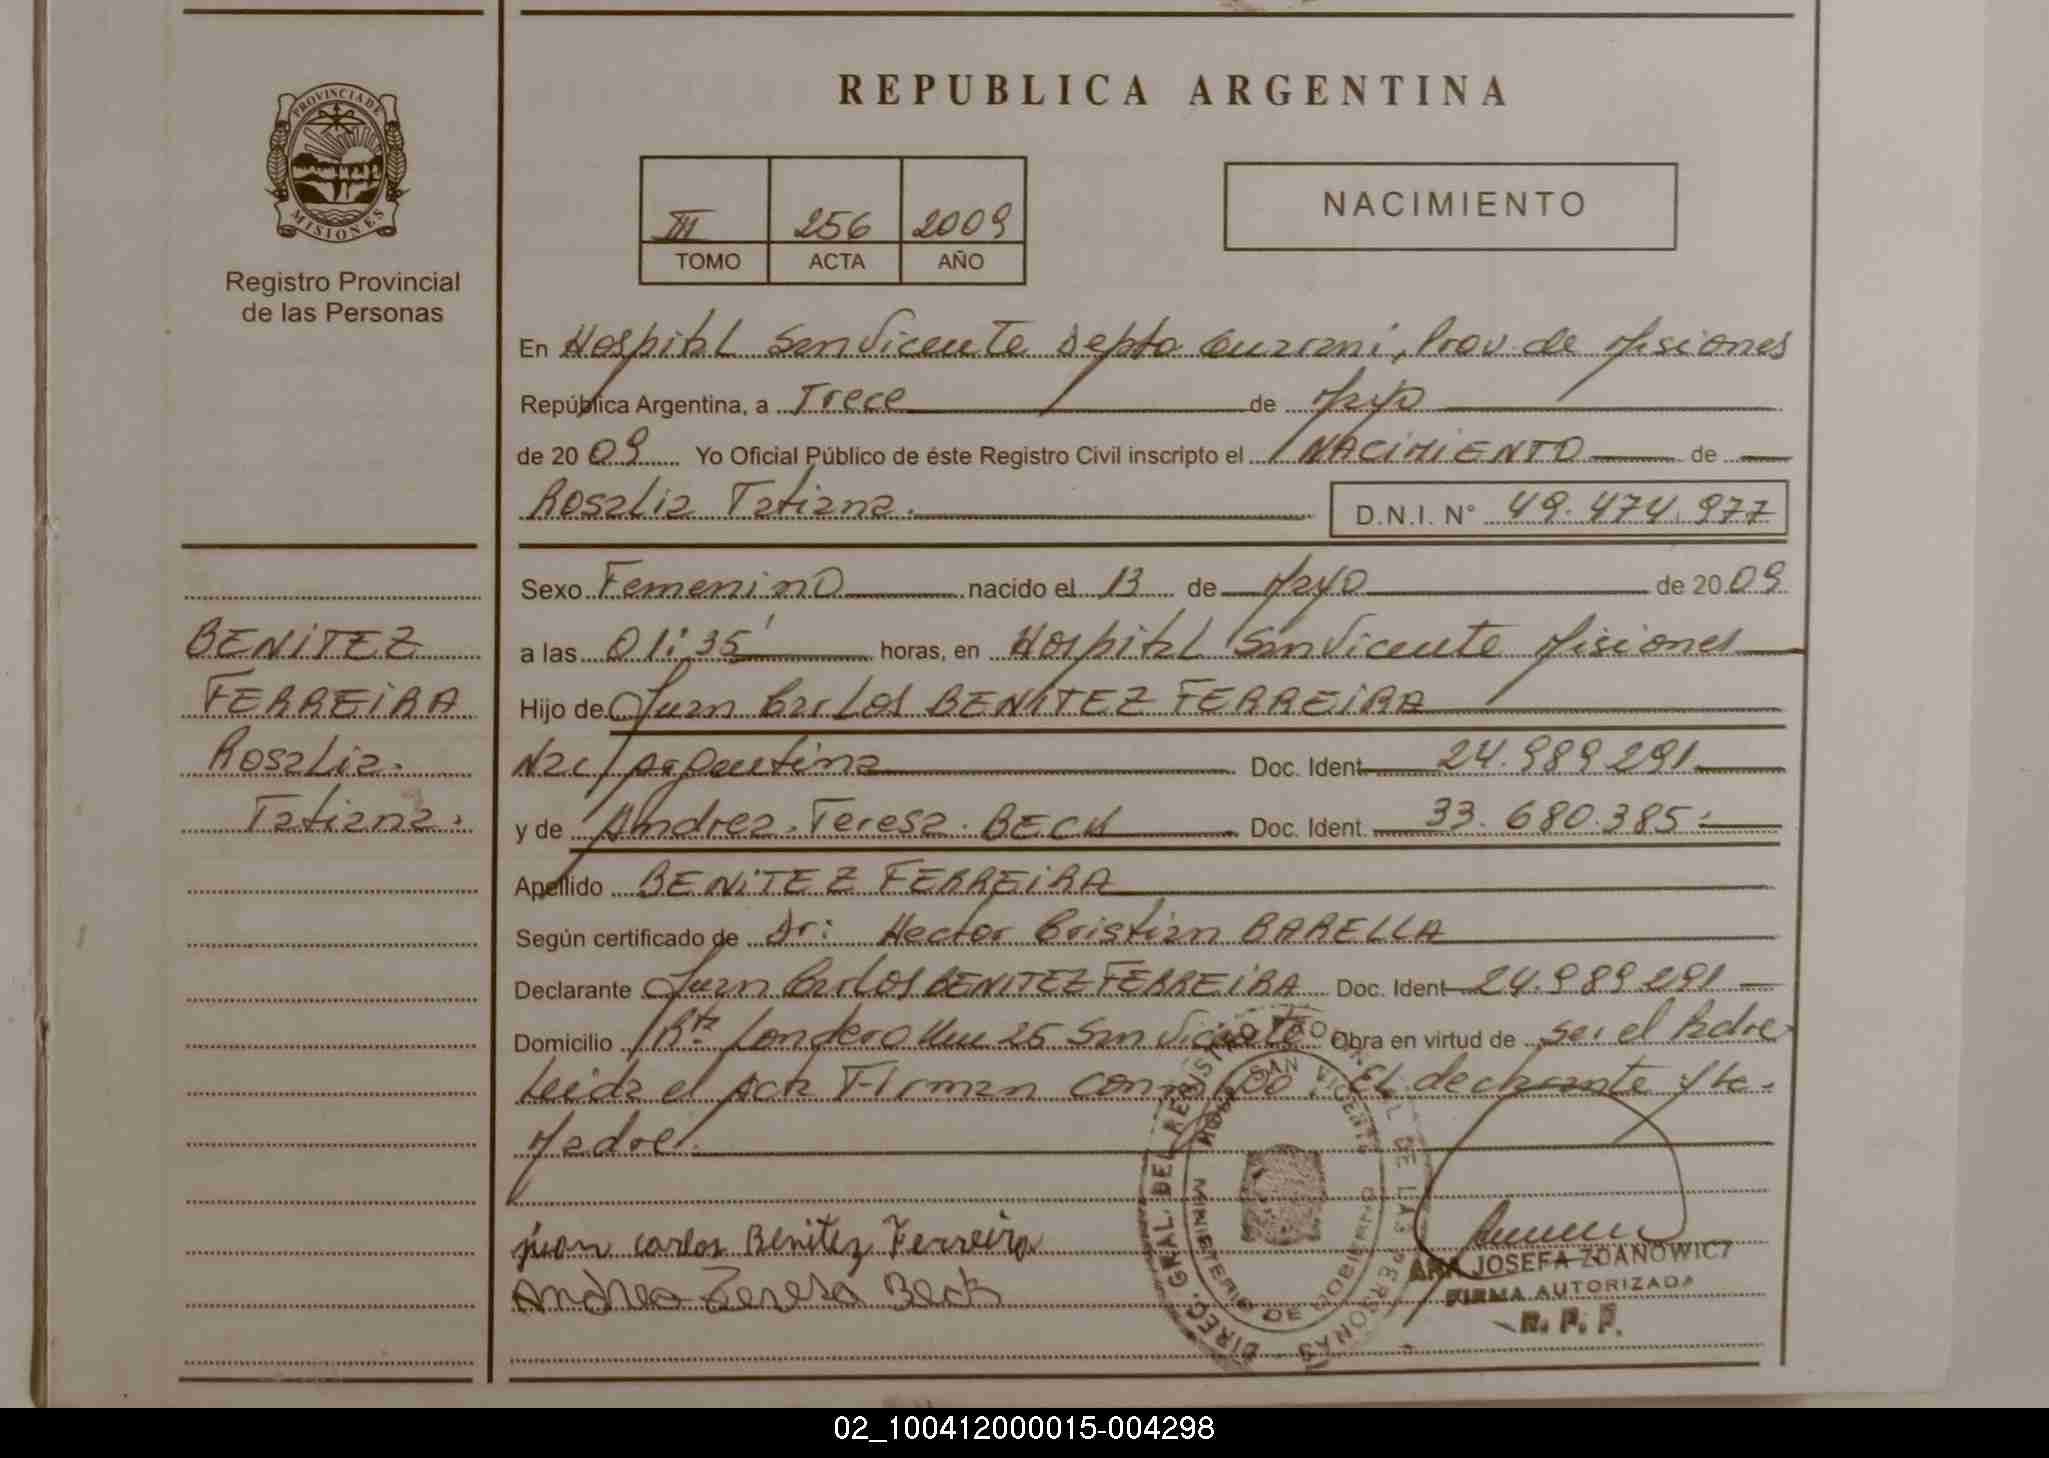 REPUBLICA ARGENTINA
PROVINCIA DE
MISIONES
Registro Provincial
de las Personas
III 256 2009
TOMO ACTA AÑO
NACIMIENTO
En Hospital San Vicente Depto Guarani, Prov. de Misiones
República Argentina, a Trece de Mayo
de 20 09 Yo Oficial Público de éste Registro Civil inscripto el NACIMIENTO de
Rosalia Tatiana. D.N.I. N° 49.474.977
Sexo Femenino nacido el 13 de Mayo de 20 09
a las 01:35' horas, en Hospital San Vicente Misiones
Hijo de Juan Carlos BENITEZ FERREIRA
Nac Argentina Doc. Ident 24.989.291
y de Andrea Teresa BECK Doc. Ident. 33.680.385
Apellido BENITEZ FERREIRA
Según certificado de Dr: Hector Cristian BARELLA
Declarante Juan Carlos BENITEZ FERREIRA Doc. Ident 24.989.291
Domicilio Rta Londero Km 26 San Vicente Obra en virtud de ser el Padre
Leida el Acta Firman conmigo, EL declarante y la
Madre.
BENITEZ
FERREIRA
Rosalia.
Tatiana.
juan carlos Benitez Ferreira
Andrea Teresa Beck
DIREC. GRAL. DEL REGISTRO PROVINCIAL DE LAS PERSONAS
HOSP. SAN VICENTE
MINISTERIO DE GOBIERNO
JOSEFA ZDANOWICZ
FIRMA AUTORIZADA
R. P. P.
02_100412000015-004298